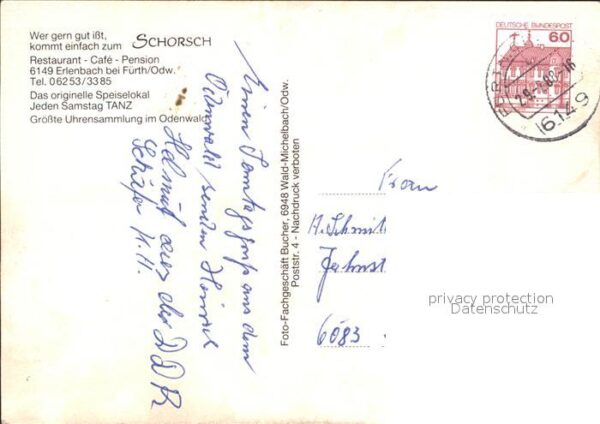 Wer gern gut ißt,
kommt einfach zum SCHORSCH
Restaurant - Café - Pension
6149 Erlenbach bei Fürth/Odw.
Tel. 06253/3385
Das originelle Speiselokal
Jeden Samstag TANZ
Größte Uhrensammlung im Odenwald
Einen Sonntagsgruß aus dem
Odenwald senden Heinrich
Helmut aus der DDR
Schäfer K.H.
Foto-Fachgeschäft Bucher, 6948 Wald-Michelbach/Odw.
Poststr. 4 - Nachdruck verboten
DEUTSCHE BUNDESPOST
60
6149
Frau
A. Schmit
Jahnst
6083
privacy protection
Datenschutz